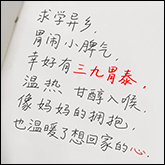 求学异乡，
胃闹小脾气，
幸好有三九胃泰，
温热 甘醇入喉，
像妈妈的拥抱，
也温暖了想回家的心。